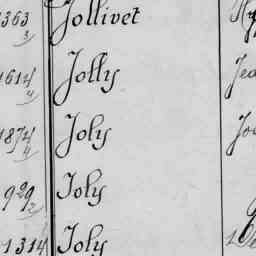 363 Jollivet
3
1614 Jolly
4
1874 Joly
4
929 Joly
2
1314 Joly